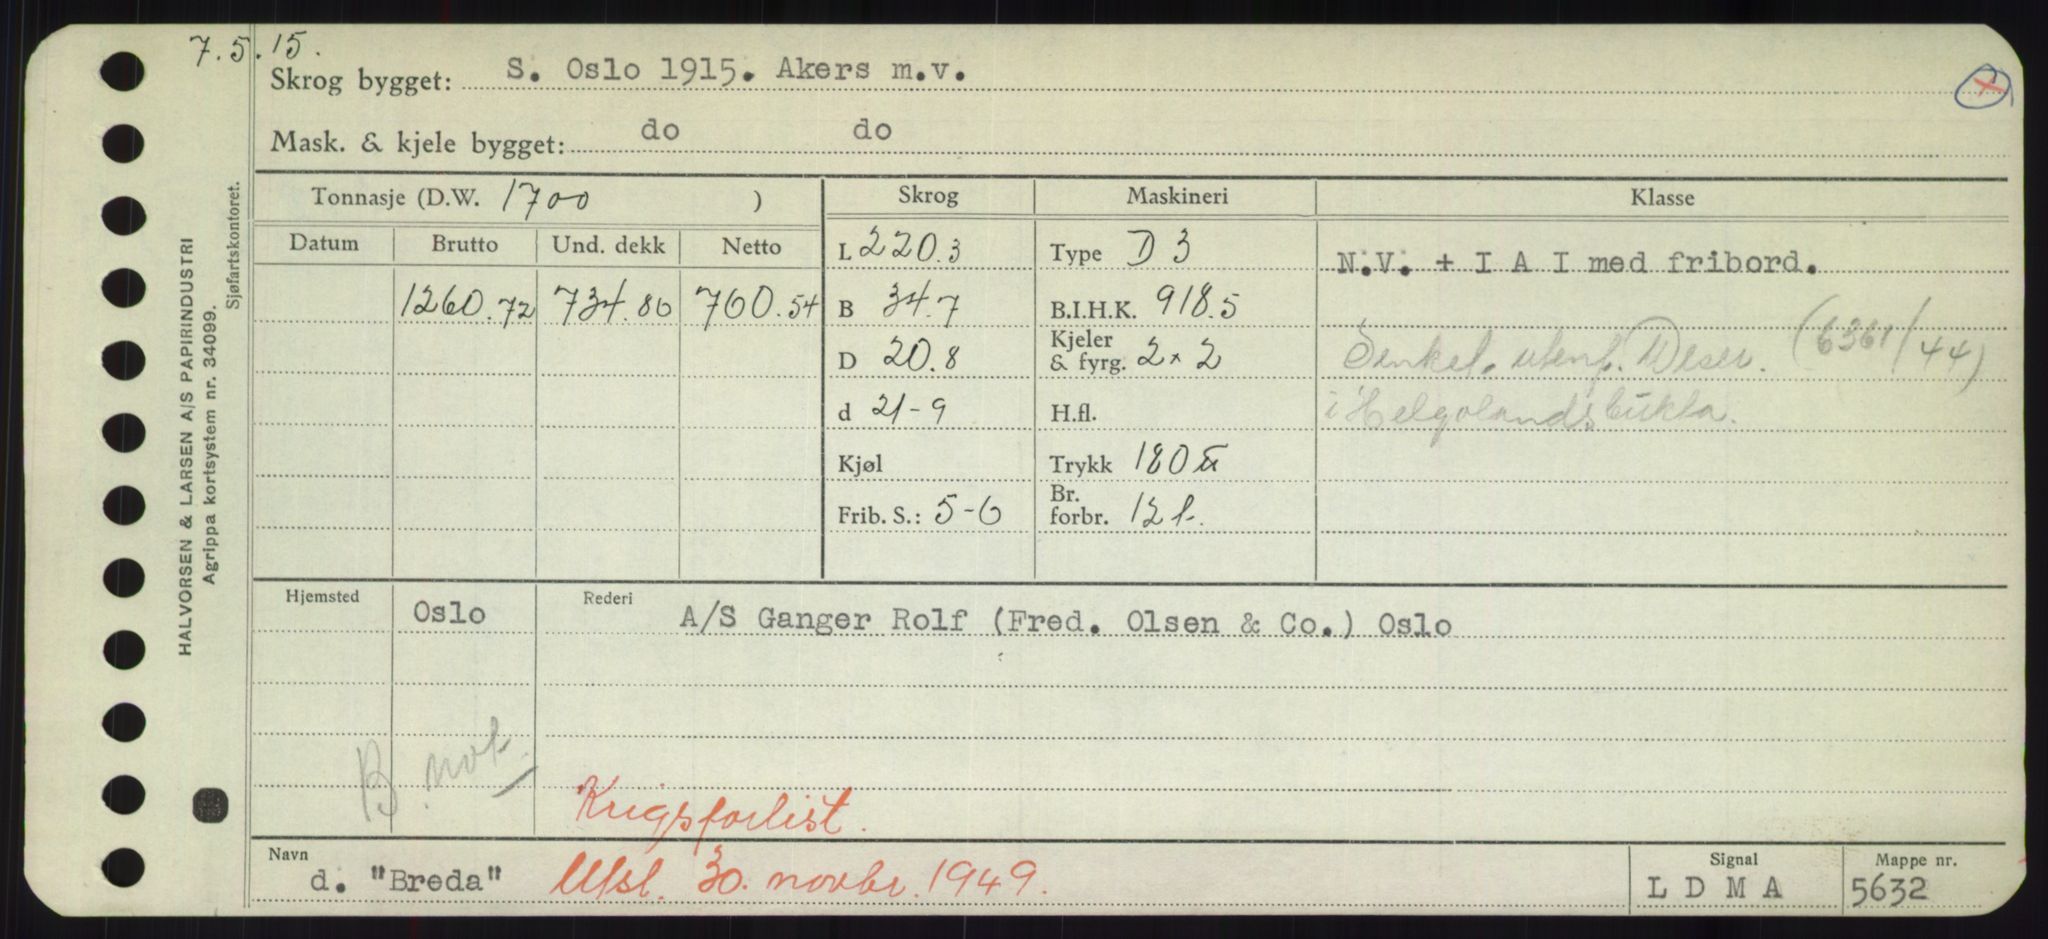 7.5.15.
Skrog bygget: S. Oslo 1915. Akers m.v.
Mask. & kjele bygget: do do
Tonnasje (D.W. 1700 ) Skrog Maskineri Klasse
Datum Brutto Und. dekk Netto
1260.72 734.80 760.54
L 220.3
B 34.7
D 20.8
d 21-9
Kjøl
Frib. S.: 5-6
Type D 3
B.I.H.K. 918.5
Kjeler
& fyrg. 2 x 2
H.fl.
Trykk 180
Br.
forbr. 12 t.
N.V. + I A I med fribord.
Senket. utenf. Weser. (6361/44)
i Helgolandsbukta.
Hjemsted Oslo Rederi A/S Ganger Rolf (Fred. Olsen & Co.) Oslo
B. not.
Krigsforlist.
Navn d. "Breda" Utsl. 30. novbr. 1949.
Signal L D M A
Mappe nr. 5632
HALVORSEN & LARSEN A/S PAPIRINDUSTRI
Agrippa kortsystem nr. 34099.
Sjøfartskontoret.